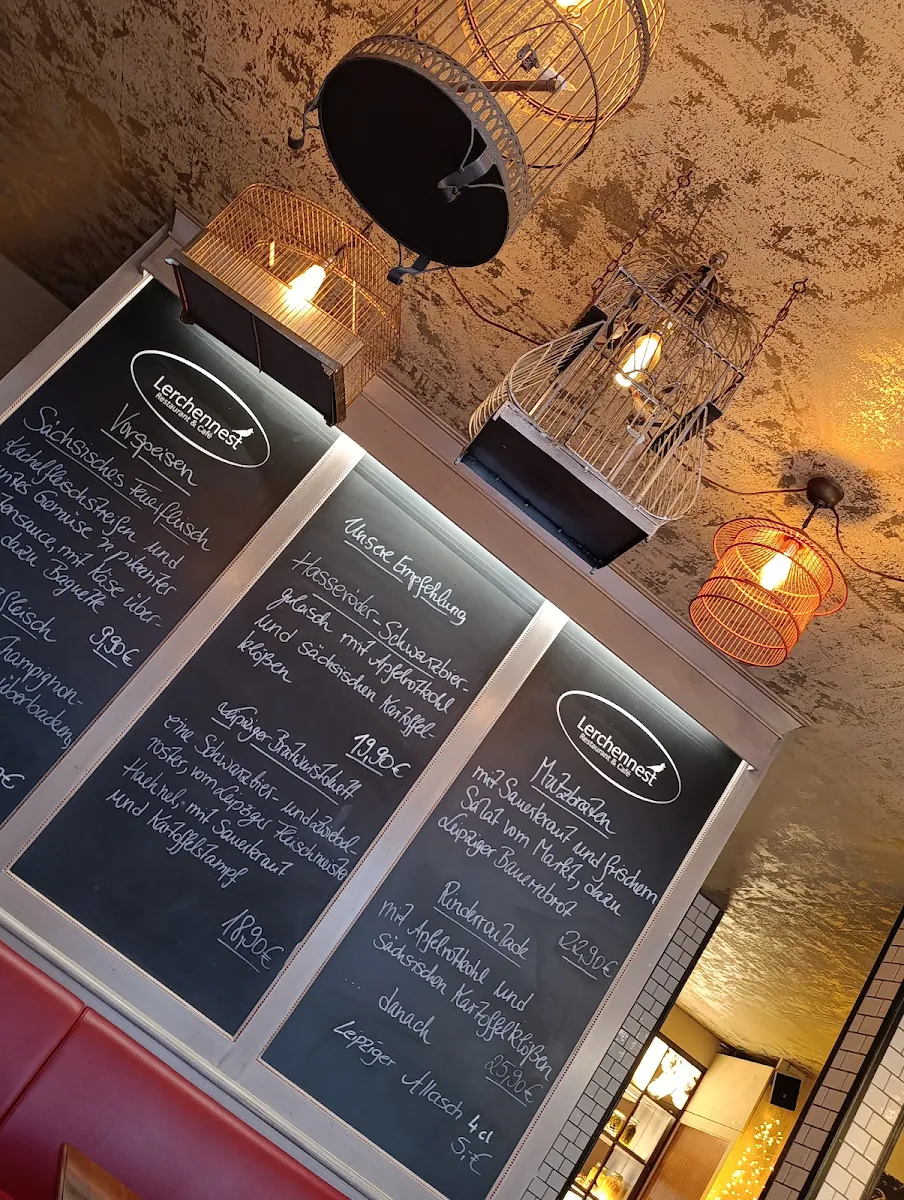 Lerchennest
Restaurant & Café
Vorspeisen
Sächsisches Feuerfleisch
Kachelfleischstreifen und
Gemüse 'n pikanter
mit Käse über-
dazu Baguette
9,90€
Champignon-
überbacken
Unsere Empfehlung
Hasseröder-Schwarzbier-
gulasch mit Apfelrotkohl
und sächsischen Kartoffel-
klößen
19,90€
Leipziger Bratwurstduett
eine Schwarzbier- und Zwiebel-
roster, vom Leipziger Fleischmeister
mit Sauerkraut
und Kartoffelstampf
18,90€
Lerchennest
Restaurant & Café
Mutzbraten
mit Sauerkraut und frischem
Salat vom Markt, dazu
Leipziger Bauernbrot
22,90€
Rinderroulade
mit Apfelrotkohl und
Sächsischen Kartoffelklößen
25,90€
... danach
Leipziger Allasch 4 cl
5,-€